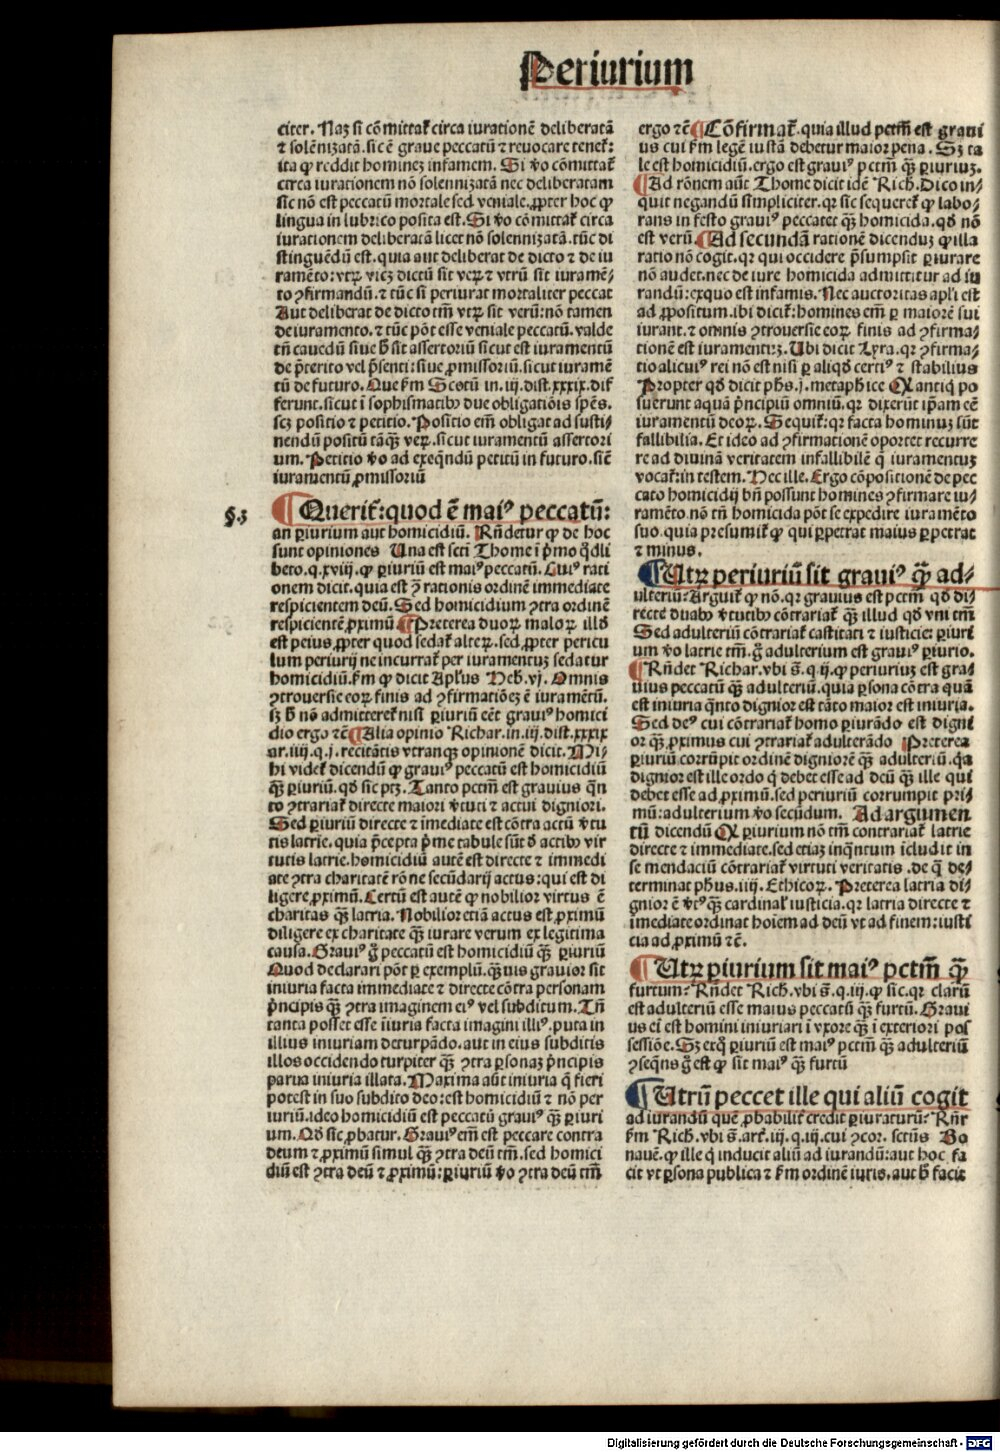 Periurium
citer. Naz si cōmittat᷑ circa iurationē deliberatā
⁊ solēnizatā. sic ē graue peccatū ⁊ reuocare tenet᷑:
ita ꝙ reddit hominez infamem. Si ꝟo cōmittat᷑
circa iurationem nō solennizatā nec deliberatam
sic nō est peccatū mortale sed veniale. ꝓpter hoc ꝙ
lingua in lubrico posita est. Si ꝟo cōmittat᷑ circa
iurationem deliberatā licet nō solennizatā. tūc di
stinguēdū est. quia aut deliberat de dicto ⁊ de iu
ramēto: vtꝝ vicz dictū sit veꝝ ⁊ vtrū sit iuramē-
to ꝯfirmandū. ⁊ tūc si periurat mortaliter peccat
Aut deliberat de dicto tm̄ vtꝝ sit verū: nō tamen
de iuramento. ⁊ tūc pōt esse veniale peccatū. valde
tn̄ cauedū siue h̄ sit assertoriū sicut est iuramentū
de p̄terito vel p̄senti: siue ꝓmissoriū. sicut iuramē
tū de futuro. Que ẜm Scotū in. iij. dist. xxxix. dif
ferunt. sicut ī sophismatibꝰ due obligatiōis spēs.
scz positio ⁊ petitio. Positio em̄ obligat ad susti-
nendū positū tāqꝫ veꝝ. sicut iuramentū assertori
um. Petitio ꝟo ad exeqn̄dū petitū in futuro. sicē
iuramentū ꝓmissoriū
§. 3
¶ Querit᷑: quod ē maiꝰ peccatū:
an ꝑiurium aut homicidiū. Rn̄detur ꝙ de hoc
sunt opiniones Una est scti Thome ī p̄mo qͦdli
beto. q. xviij. ꝙ ꝑiuriū est maiꝰ peccatū. Cuiꝰ rati
onem dicit. quia est ꝯ rationis ordinē immediate
respicientem deū. Sed homicidium ꝯtra ordinē
respicientē ꝓximū ¶ Preterea duoꝝ maloꝝ illd̄
est peius ꝓpter quod sedat᷑ alteꝝ. sed ꝓpter pericu
lum periurij ne incurrat᷑ per iuramentuz sedatur
homicidiū. ẜm ꝙ dicit Apl̄us Heb. vj. Omnis
ꝯtrouersie eoꝝ finis ad ꝯfirmatiōez ē iuramētū.
sꝫ h̄ nō admitteret᷑ nisi ꝑiuriū eēt grauiꝰ homici
dio ergo ⁊c̄ ¶ Alia opinio Richar. in. iij. dist. xxxix
ar. iiij. q. j. recitātis vtranqꝫ opinionē dicit. Mi-
hi videt᷑ dicendū ꝙ grauiꝰ peccatū est homicidiū
qꝫ̄ ꝑiuriū. qd̄ sic ptꝫ. Tanto pctm̄ est grauius qn̄
to ꝯtrariat᷑ directe maiori ꝟtuti ⁊ actui digniori.
Sed ꝑiuriū directe ⁊ īmediate est cōtra actū ꝟtu
tis latrie. quia p̄cepta p̄me tabule sūt d̄ actibꝰ vir
tutis latrie. homicidiū autē est directe ⁊ immedi
ate ꝯtra charitatē rōne secūdarij actus: qui est di
ligere ꝓximū. Certū est autē ꝙ nobilior virtus ē
charitas qꝫ̄ latria. Nobilior etiā actus est ꝓximū
diligere ex charitate qꝫ̄ iurare verum ex legitima
causa. Grauiꝰ gͦ peccatū est homicidiū qꝫ̄ ꝑiuriū
Quod declarari pōt ꝑ exemplū. qꝫ̄uis grauior sit
iniuria facta immediate ⁊ directe cōtra personam
p̄ncipis qꝫ̄ ꝯtra imaginem eiꝰ vel subditum. Tn̄
tanta posset esse īiuria facta imagini illiꝰ. puta in
illius iniuriam deturpādo. aut in eius subditis
illos occidendo turpiter qꝫ̄ ꝯtra ꝑsonaz p̄ncipis
parua iniuria illata. Maxima aūt iniuria q̄ fieri
potest in suo subdito deo: est homicidiū ⁊ nō per
iuriū. ideo homicidiū est peccatū grauiꝰ qꝫ̄ ꝑiuri
um. Qd̄ sic ꝓbatur. Grauiꝰ em̄ est peccare contra
deum ⁊ ꝓximū simul qꝫ̄ ꝯtra deū tm̄. sed homici
diū est ꝯtra deū ⁊ ꝓximū: ꝑiuriū ꝟo ꝯtra deū tm̄
ergo ⁊c̄ ¶ Cōfirmat᷑. quia illud pctm̄ est graui
us cui ẜm legē iustā debetur maior pena. Sꝫ ta
le est homicidiū. ergo est grauiꝰ pctm̄ qꝫ̄ ꝑiuriuz.
¶ Ad rōnem aūt Thome dicit idē Rich. Dico in-
quit negandū simpliciter. qr sic sequeret᷑ ꝙ labo-
rans in festo grauiꝰ peccatet qꝫ̄ homicida. qd̄ nō
est verū. ¶ Ad secundā rationē dicenduz ꝙ illa
ratio nō cogit. qr qui occidere p̄sumpsit ꝑiurare
nō audet. nec de iure homicida admittitur ad iu
randū: exquo est infamis. Nec auctoritas apl̄i est
ad ꝓpositum. ibi dicit᷑: homines em̄ ꝑ maiorē sui
iurant. ⁊ omnis ꝯtrouersie eoꝝ finis ad ꝯfirma-
tionē est iuramentuz. Ubi dicit Lyra. qr ꝯfirma-
tio alicuiꝰ rei nō est nisi ꝑ aliqd̄ certiꝰ ⁊ stabilius
Propter qd̄ dicit ph̄s. j. metaph̄ice Ꝙ antiq̇ po
suerunt aquā p̄ncipiū omniū. qr dixerūt ip̄am eē
iuramentū deoꝝ. Sequit᷑: qr facta hominuz sūt
fallibilia. Et ideo ad ꝯfirmationē oportet recurre
re ad diuinā veritatem infallibilē q̄ iuramentuz
vocat᷑: in testem. Hec ille. Ergo cōpositionē de pec
cato homicidij bn̄ possunt homines ꝯfirmare iu-
ramēto. nō tn̄ homicida pōt se expedire iuramēto
suo. quia presumit᷑ ꝙ qui ꝑpetrat maius ꝑpetrat
⁊ minus.
¶ Utꝝ periuriū sit grauiꝰ qꝫ̄ ad-
ulteriū: Arguit᷑ ꝙ nō. qr grauius est pctm̄ qd̄ di-
recte duabꝰ ꝟtutibꝰ cōtrariat᷑ qꝫ̄ illud qd̄ vni tm̄
Sed adulteriū cōtrariat᷑ castitati ⁊ iusticie: ꝑiuri
um ꝟo latrie tm̄. gͦ adulterium est grauiꝰ ꝑiurio.
¶ Rn̄det Richar. vbi s̄. q. ij. ꝙ periuriuz est gra-
uius peccatū qꝫ̄ adulteriū. quia ꝑsona cōtra quā
est iniuria qn̄to dignior est tāto maior est iniuria.
Sed deꝰ cui cōtrariat᷑ homo ꝑiurādo est digni
or qꝫ̄ ꝓximus cui ꝯtrariat᷑ adulterādo ¶ Preterea
ꝑiuriū corrūpit ordinē digniorē qꝫ̄ adulteriū. qa
dignior est ille ordo q̄ debet esse ad deū qꝫ̄ ille qui
debet esse ad ꝓximū. sed periuriū corrumpit pri-
mū: adulterium ꝟo secūdum. Ad argumen
tū dicendū Ꝙ ꝑiurium nō tm̄ contrariat᷑ latrie
directe ⁊ immediate. sed etiaz inqn̄tum īcludit in
se mendaciū cōtrariat᷑ virtuti veritatis. de q̄ de-
terminat ph̄us. iiij. Ethicoꝝ. Preterea latria di-
gnior ē ꝟtꝰ qꝫ̄ cardinal᷑ iusticia. qr latria directe ⁊
īmediate ordinat hoīem ad deū vt ad finem: iusti
cia ad ꝓximū ⁊c̄.
¶ Utꝝ ꝑiurium sit maiꝰ pctm̄ qꝫ̄
furtum: Rn̄det Rich. vbi s̄. q. iij. ꝙ sic. qr clarū
est adulteriū esse maius peccatū qꝫ̄ furtū. Graui
us ei est homini iniuriari ī vxore qꝫ̄ ī exteriori pos
sessiōe. Sꝫ exq̊ ꝑiuriū est maiꝰ pctm̄ qꝫ̄ adulteriū
ꝯseqn̄s gͦ est ꝙ sit maiꝰ qꝫ̄ furtū
¶ Utrū peccet ille qui aliū cogit
ad iurandū quē ꝓbabilit᷑ credit ꝑiuraturū: Rn̄r
ẜm Rich. vbi s̄. art᷑. iij. q. iij. cui ꝯcor. sctūs Bo
nauē. ꝙ ille q̇ inducit aliū ad iurandū: aut hoc fa
cit vt ꝑsona publica ⁊ ẜm ordinē iuris. aut h̄ facit
Digitalisierung gefördert durch die Deutsche Forschungsgemeinschaft - DFG